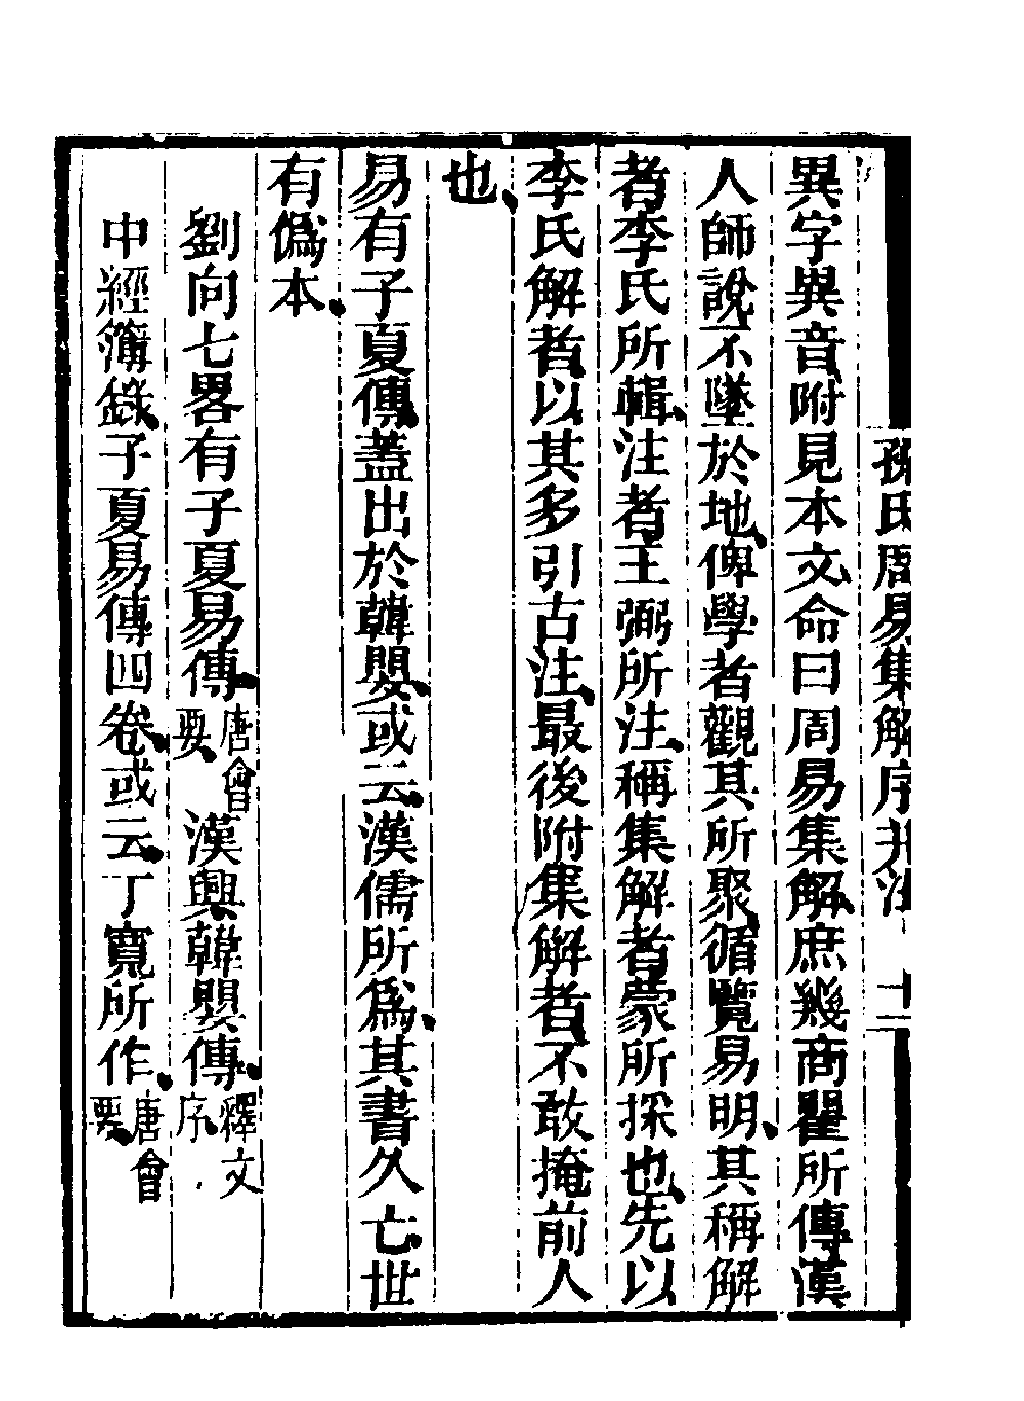 孫氏周易集解序并注 十一
異字異音附見本文命曰周易集解庶幾商瞿所傳漢
人師說不墜於地俾學者觀其所聚循覽易明其稱解
者李氏所輯注者王弼所注稱集解者蒙所採也先以
李氏解者以其多引古注最後附集解者不敢掩前人
也
易有子夏傳蓋出於韓嬰或云漢儒所爲其書久亡世
有僞本
劉向七畧有子夏易傳唐會要漢興韓嬰傳釋文序
中經簿錄子夏易傳四卷或云丁寬所作唐會要